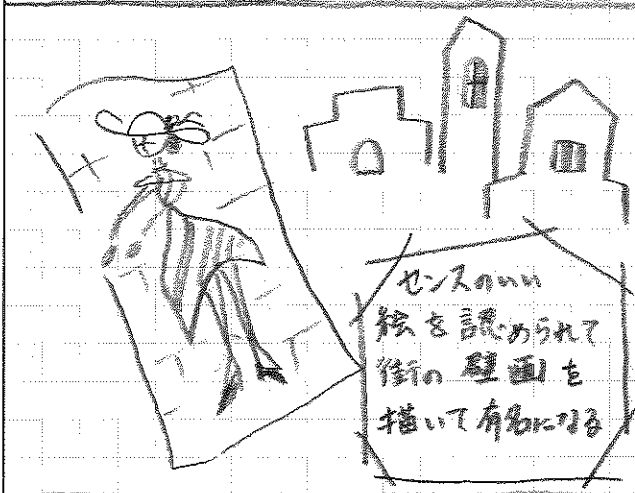 センスのいい
絵を認められて
街の壁画を
描いて有名になる